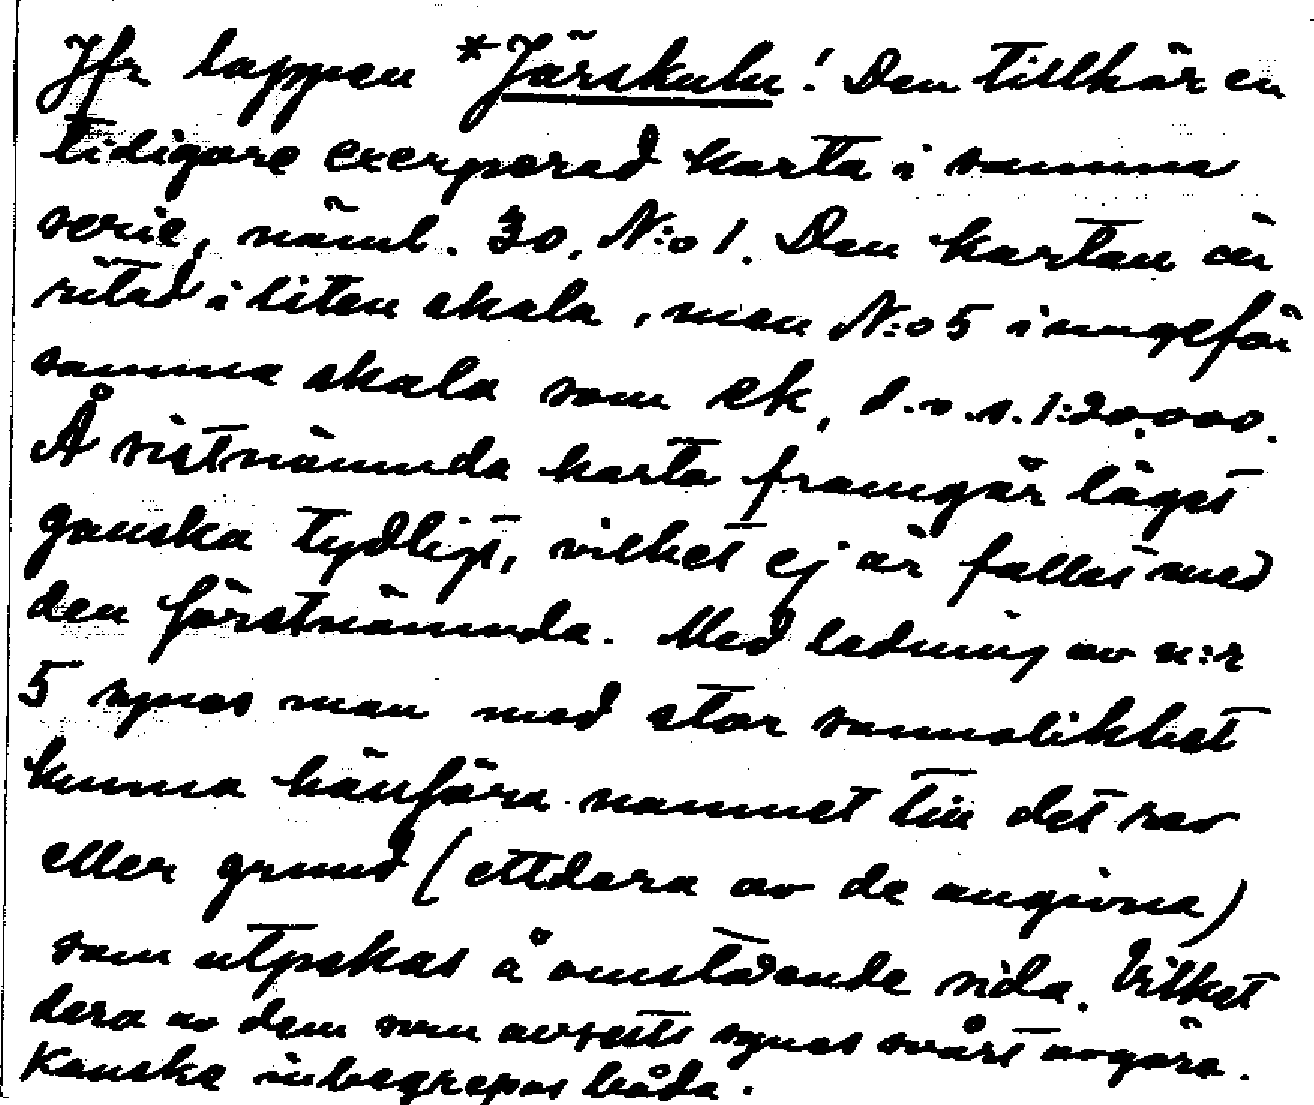 Jfr lappen *Järskulu! Den tillhör en
tidigare excerperad karta i samma
serie, näml. 30, N:o 1. Den kartan är
ritad i liten skala, men N:o 5 i ungefär
samma skala som ek, d.v.s. 1:20.000.
Å sistnämnda karta framgår läget
ganska tydligt, vilket ej är fallet med
den förstnämnda. Med ledning av n:r
5 synes man med stor sannolikhet
kunna hänföra namnet till det rev
eller grund (ettdera av de angivna)
som utpekas å omstående sida. Vilket
dera av dem som avsetts synes svårt avgöra.
Kanske inbegrepos båda.